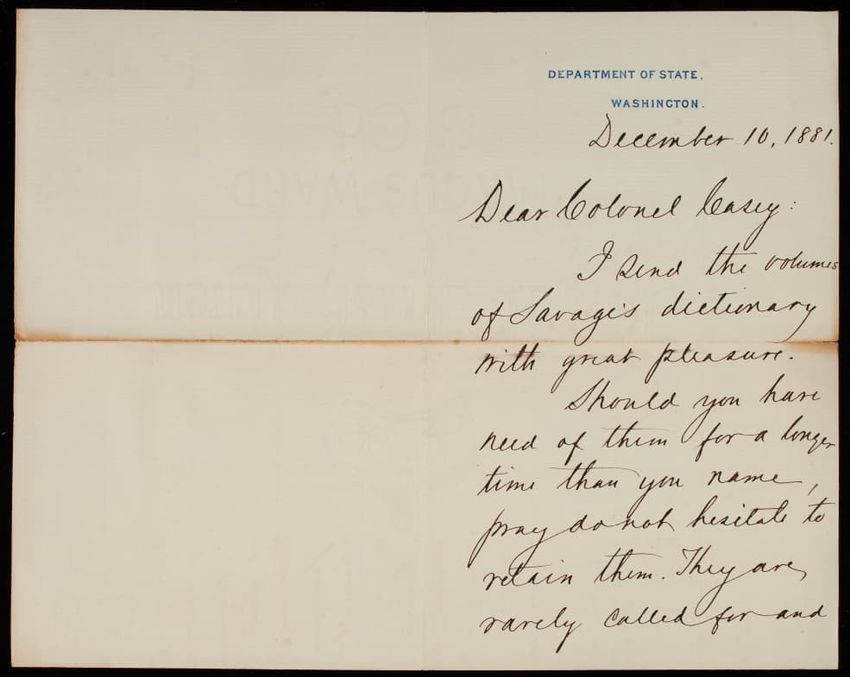 DEPARTMENT OF STATE,
WASHINGTON.
December 10, 1881.
Dear Colonel Casey:
I send the volumes
of Savage's dictionary
with great pleasure.
Should you have
need of them for a longer
time than you name,
pray do not hesitate to
retain them. They are
rarely called for and